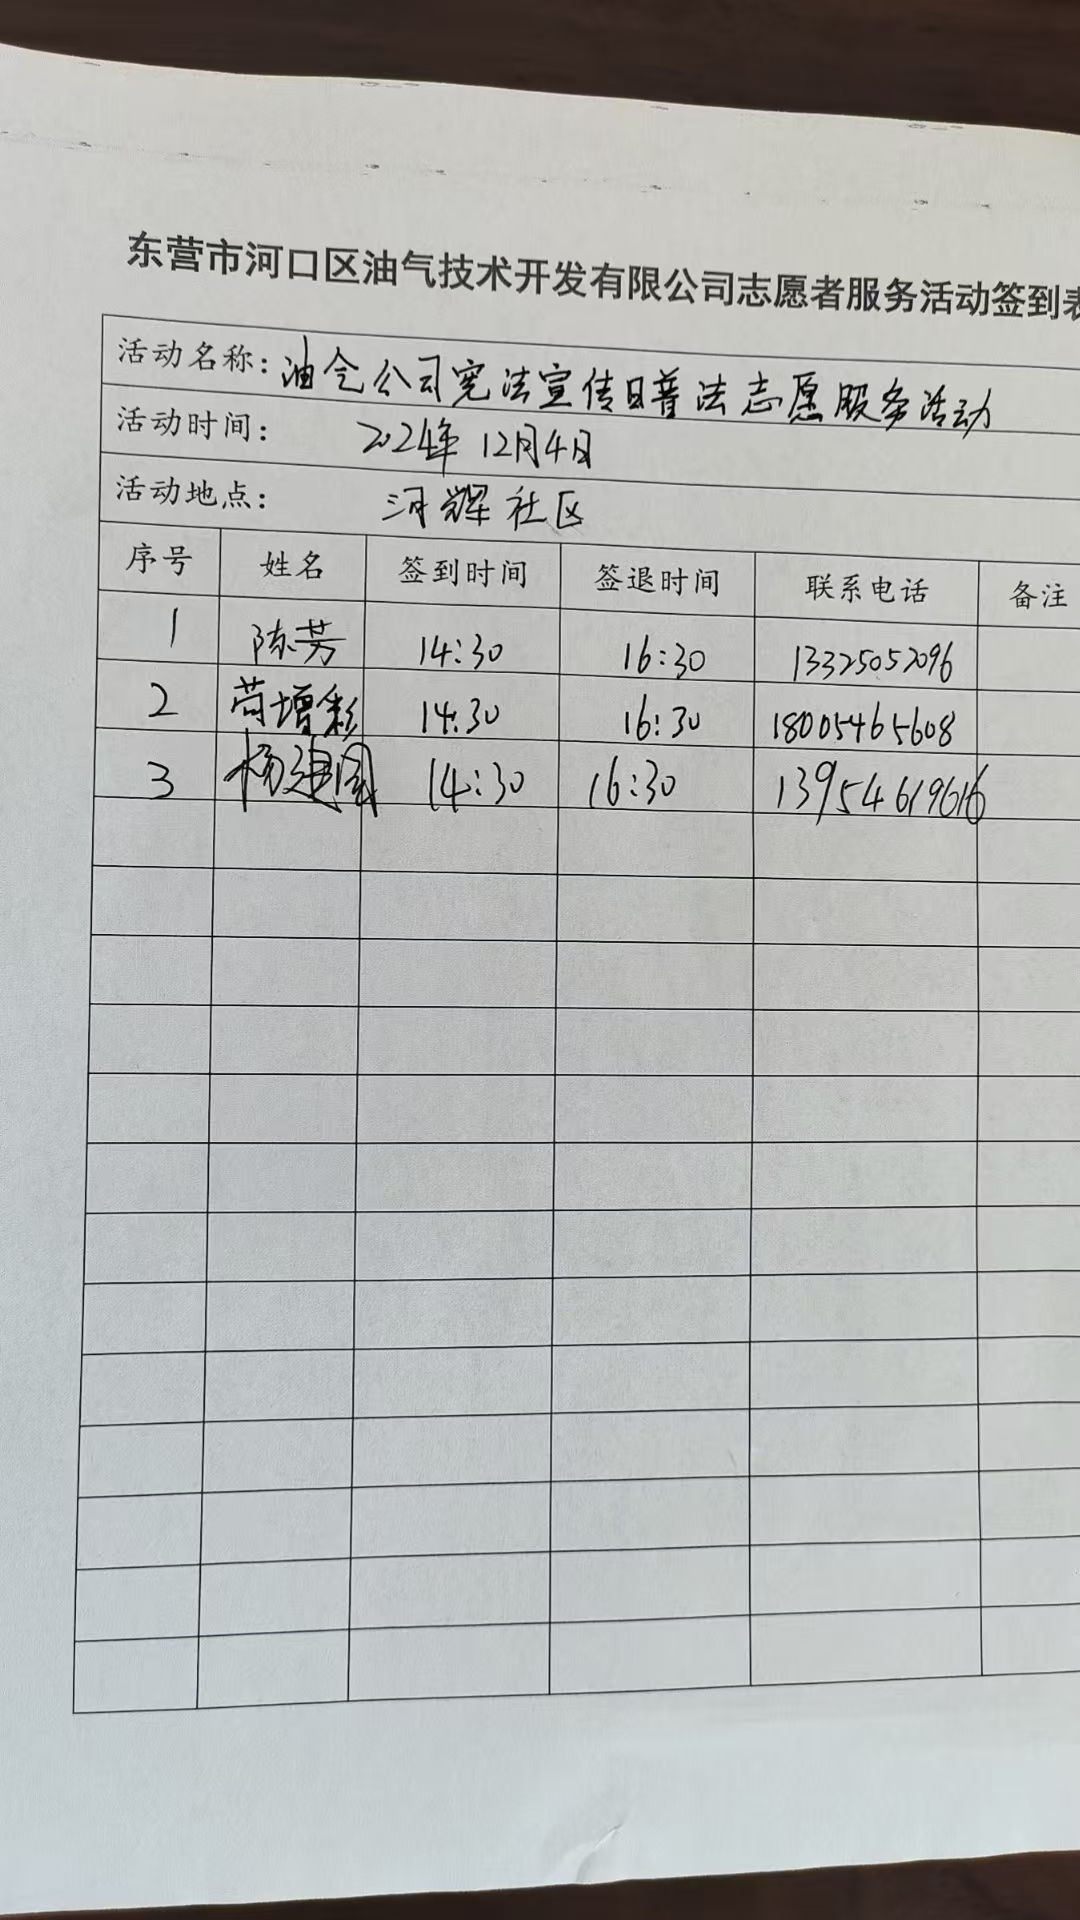 东营市河口区油气技术开发有限公司志愿者服务活动签到表
活动名称: 油气公司宪法宣传日普法志愿服务活动
活动时间: 2024年12月4日
活动地点: 河辉社区
序号 姓名 签到时间 签退时间 联系电话 备注
1 陈芳 14:30 16:30 13325052096
2 苟增彩 14:30 16:30 18005465608
3 杨建国 14:30 16:30 13954619616